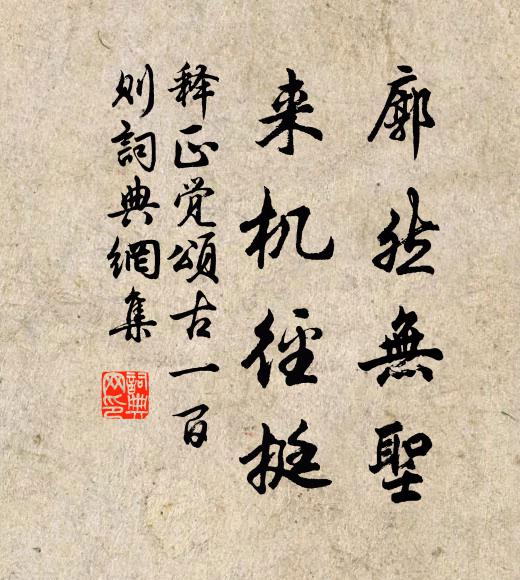 廓然無聖
来机径挺
释正觉頌古一百
则詞典網集
詞典
网印